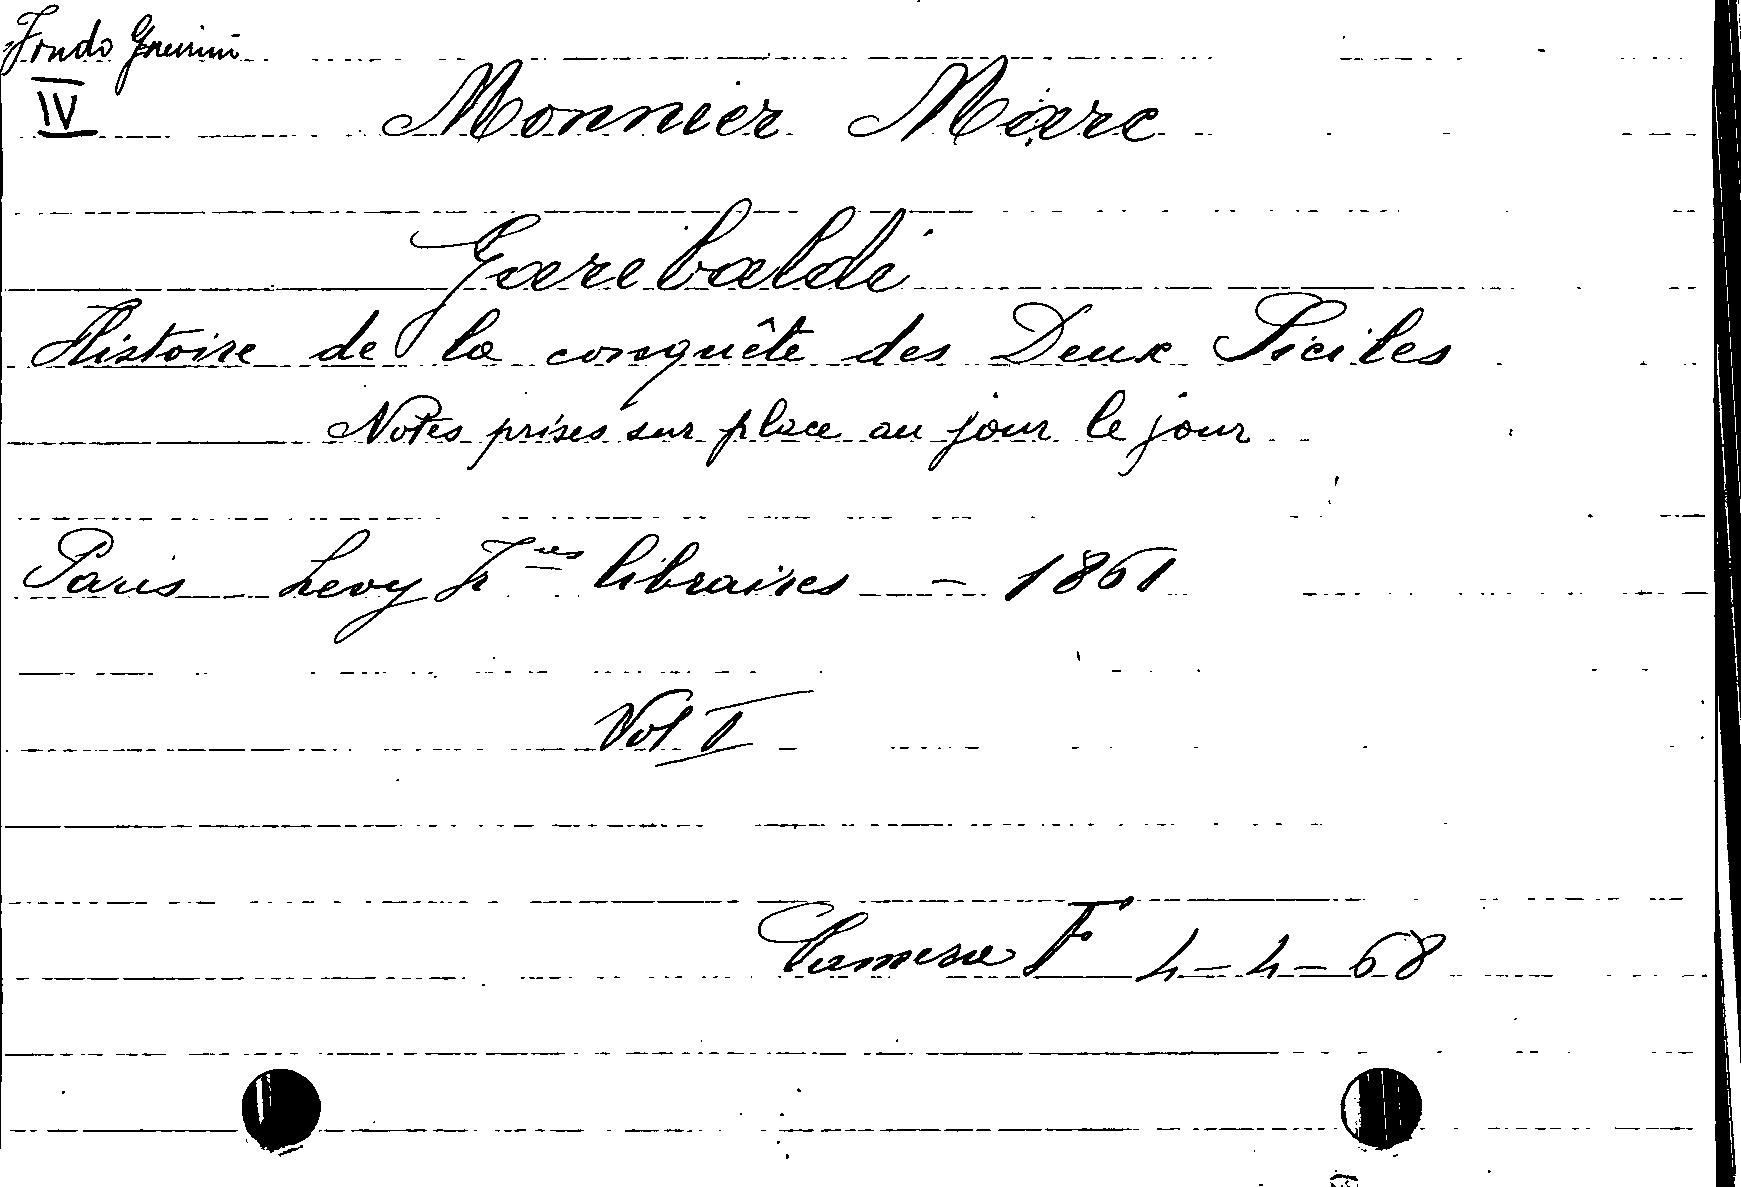 Fondo Guerrini
IV
Monnier Marc
Garibaldi
Histoire de la conquête des Deux Siciles
Notes prises sur place au jour le jour
Paris Levy Fr.res libraires - 1861
Vol I
Camera F 4-4-68